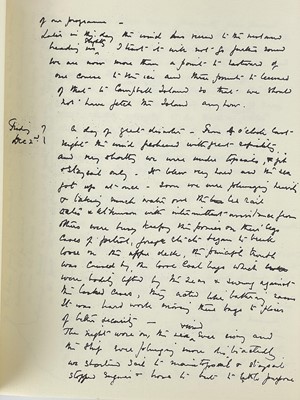 of our programme –
Later in the day the wind has veered to the westward
heading us slightly. I trust it will not go further round
we are now more than a point to eastward of
our course to the ice and three points to leeward
of that to Campbell Island so that we should
not have fetched the Island anyhow.
Friday
Dec 2nd
A day of great disaster – From 4 o'clock last
night the wind freshened with great rapidity
and very shortly we were under topsails, jib
& staysail only. It blew very hard and the sea
got up at once – Soon we were plunging heavily
& taking much water over the lee rail
Oates & Atkinson with intermittent assistance from
others were busy keeping the ponies on their legs
Cases of petrol, forage etc etc began to break
loose on the upper deck, the principal trouble
was caused by the loose coal bags which
were bodily lifted by the seas & swung against
the lashed cases, they acted like battering rams
It was hard work moving these bags to places
of better security –
The night wore on, the sea and wind ever rising and
the ship ever plunging more distractedly
we shortened sail to maintopsail & staysail
stopped engines & hove to but to little purpose